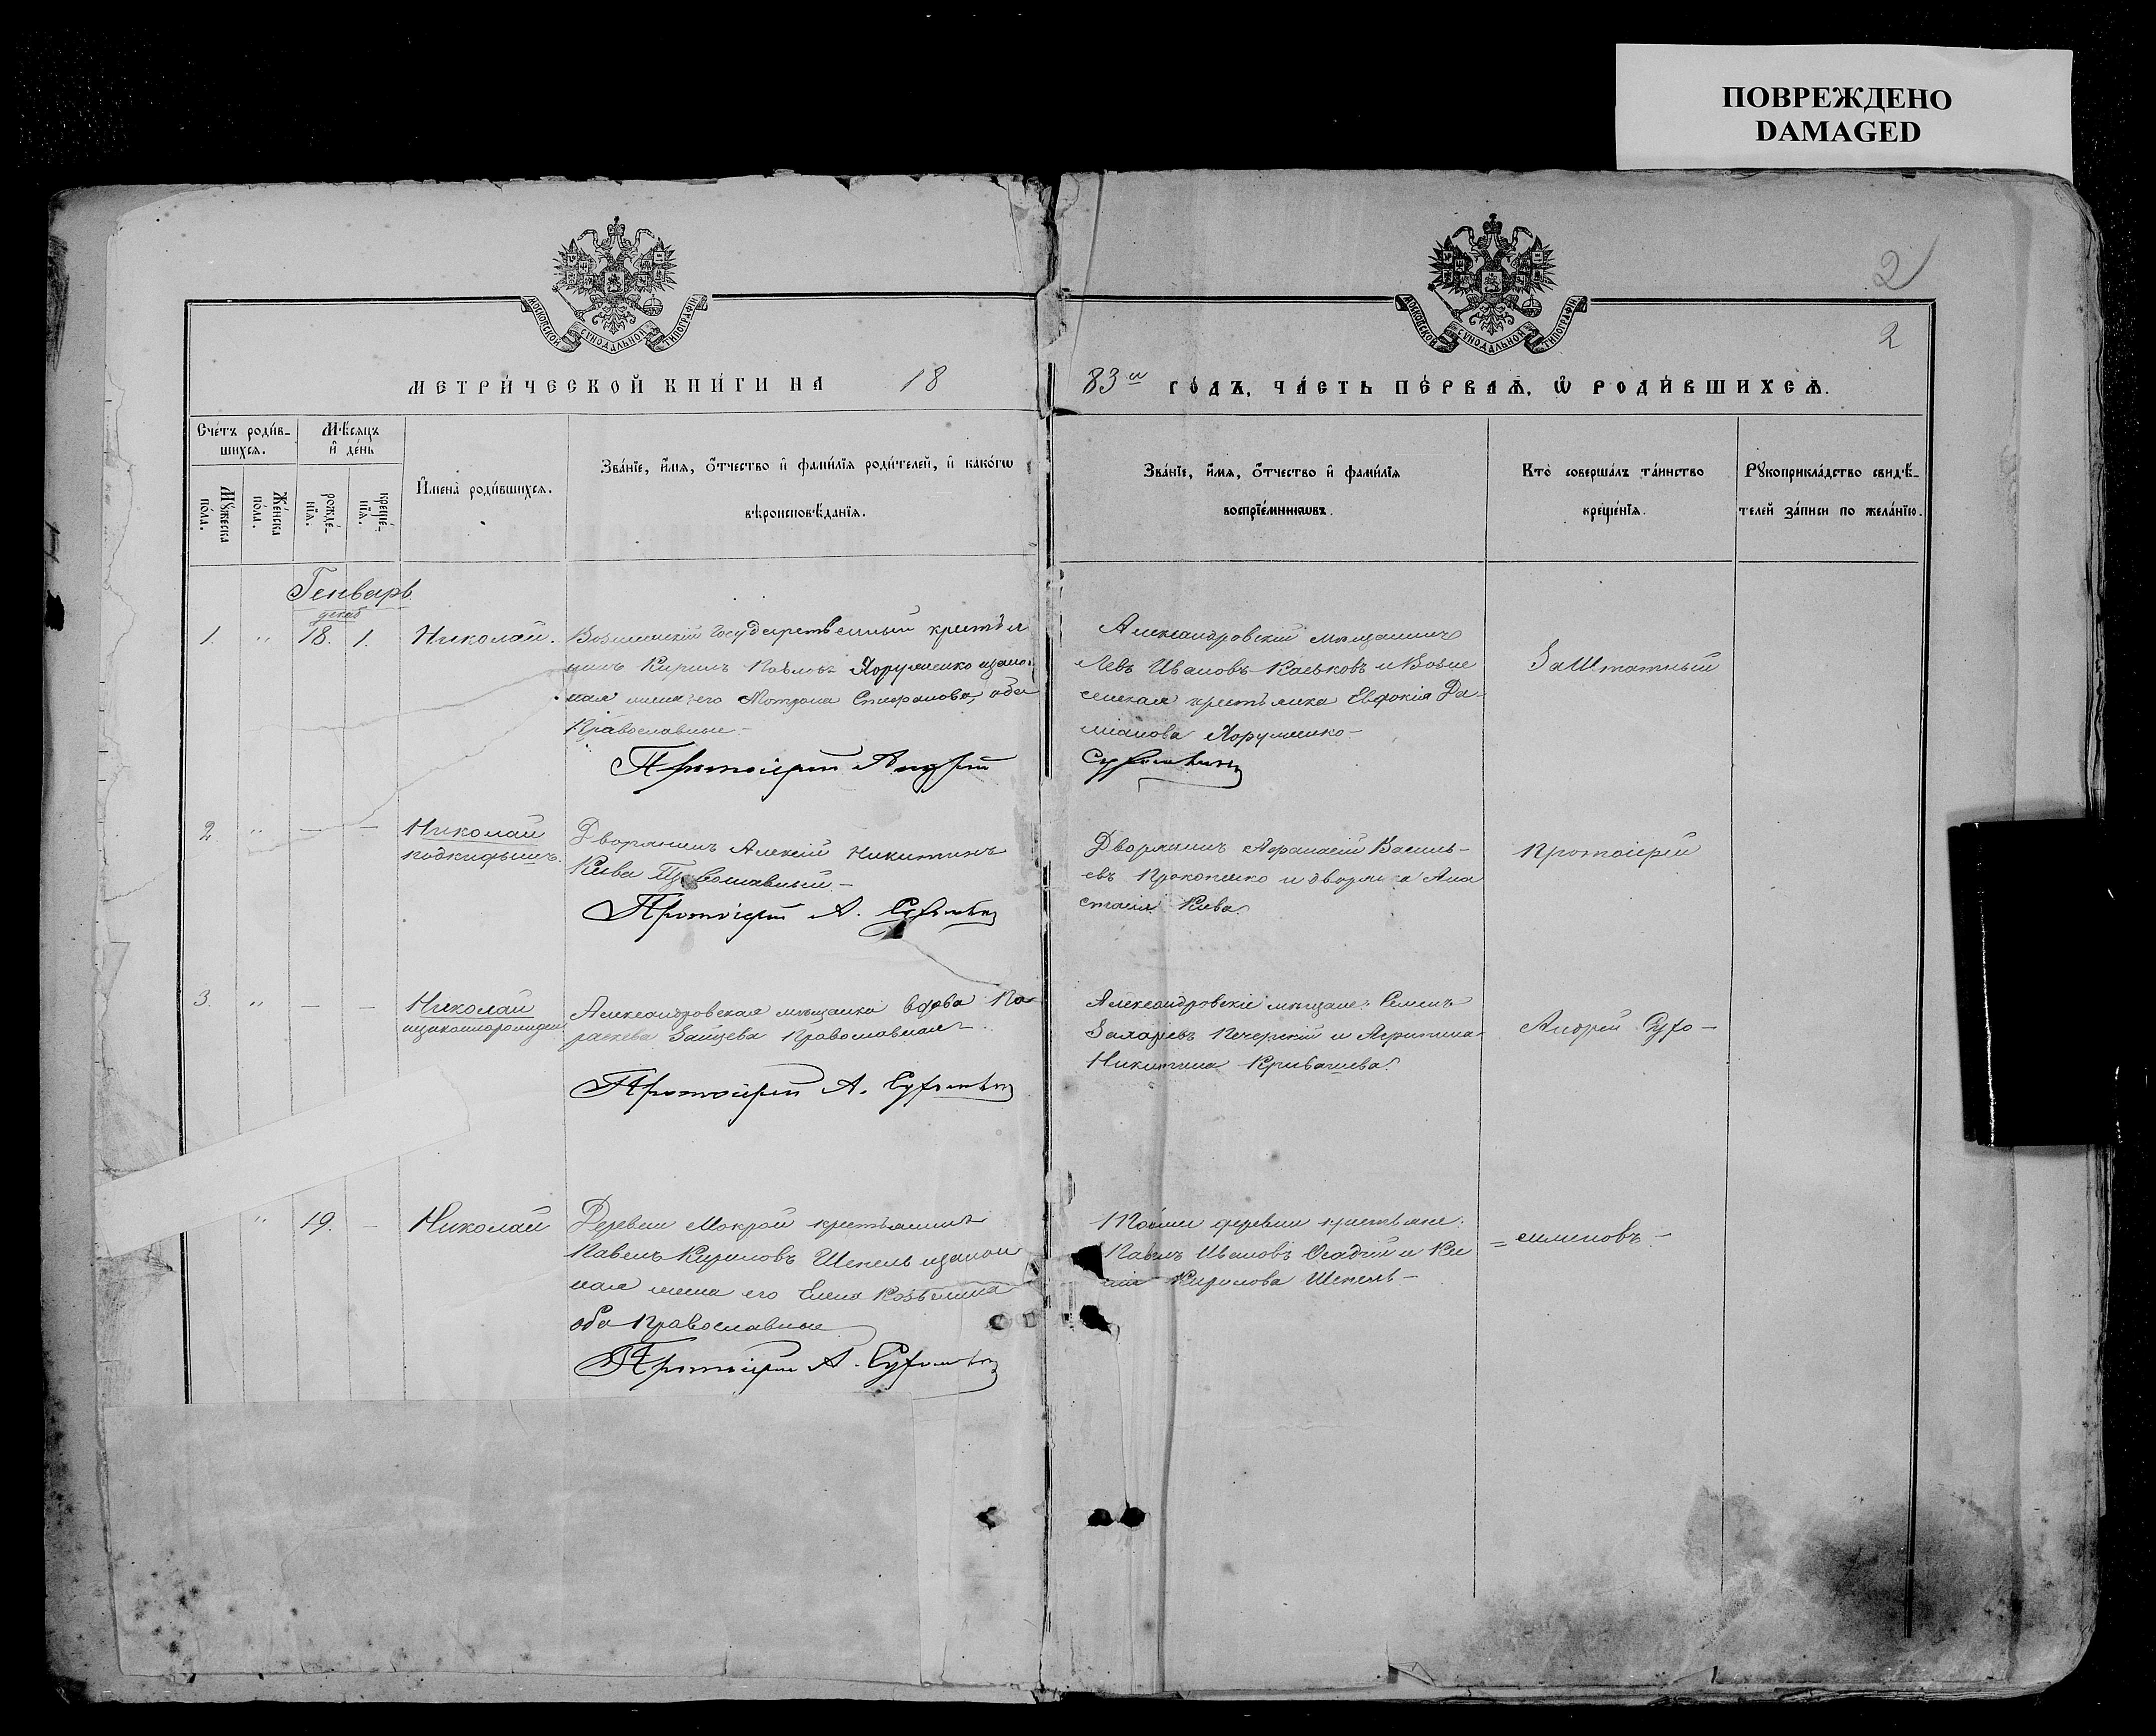 ПОВРЕЖДЕНО
DAMAGED
2
2
МОСКОВСКОЙ СѴНОДАЛЬНОЙ ТИПОГРАФІИ
МОСКОВСКОЙ СѴНОДАЛЬНОЙ ТИПОГРАФІИ
МЕТРИ́ЧЕСКОЙ КНИ́ГИ НА 18
83й ГО́ДЪ, ЧА́СТЬ ПЕ́РВАѦ, Ѽ РОДИ́ВШИХСѦ.
Сче́тъ роди́в-
шихсѧ.
Мꙋ́жеска
по́ла.
Же́нска
по́ла.
Мѣ́сѧцъ
и҆ де́нь
рожде́-
нїѧ.
креще́-
нїѧ.
И҆мена̀ роди́вшихсѧ.
Зва́нїе, и҆́мѧ, ѻ҆́тчество и҆ фами́лїѧ роди́телей, и҆ како́гѡ
вѣроисповѣ́данїѧ.
Зва́нїе, и҆́мѧ, ѻ҆́тчество и҆ фами́лїѧ
воспрїе́мникѡвъ.
Кто̀ соверша́лъ та́инство
креще́нїѧ.
Рꙋкоприкла́дство свидѣ́-
телей за́писи по жела́нїю.
Генварь
декаб
1 " 18. 1. Николай.
государственный крестья
нинъ Кирилъ Павловъ Хорушенко и закон
ная жена его Мотрона Стефанова, оба
Православные.-
Протоіерей Андрей
Александровскій мѣщанинъ
Левъ Ивановъ Каськовъ и Возне
сенская крестьянка Евдокія Да-
міанова Хорушенко-
Заштатный
2 " — — Николай
подкидышъ.
Дворянинъ Алексій Никитинъ
Кива Православный.-
Протоіерей А.
Дворянинъ Афанасій Василь-
евъ Прокопенко и дворянка Ана
стасія Кива.
Протоіерей
3. " — — Николай
незаконнорожден
Александровская мѣщанка вдова Па-
раскева Зайцева Православная-
Протоіерей А.
Александровскіе мѣщане: Семенъ
Захаріевъ Печерскій и
Никитина
Андрей Сухо-
" 19. - Николай
Деревни Мокрой крестьянинъ
Павелъ Кириловъ Шепель и закон
ная жена его Елена
оба Православные
Протоіерей А.
Тойже деревни крестьяне:
Павелъ Ивановъ Осадчій и Ки
Кирилова Шепель-
= сименовъ.-